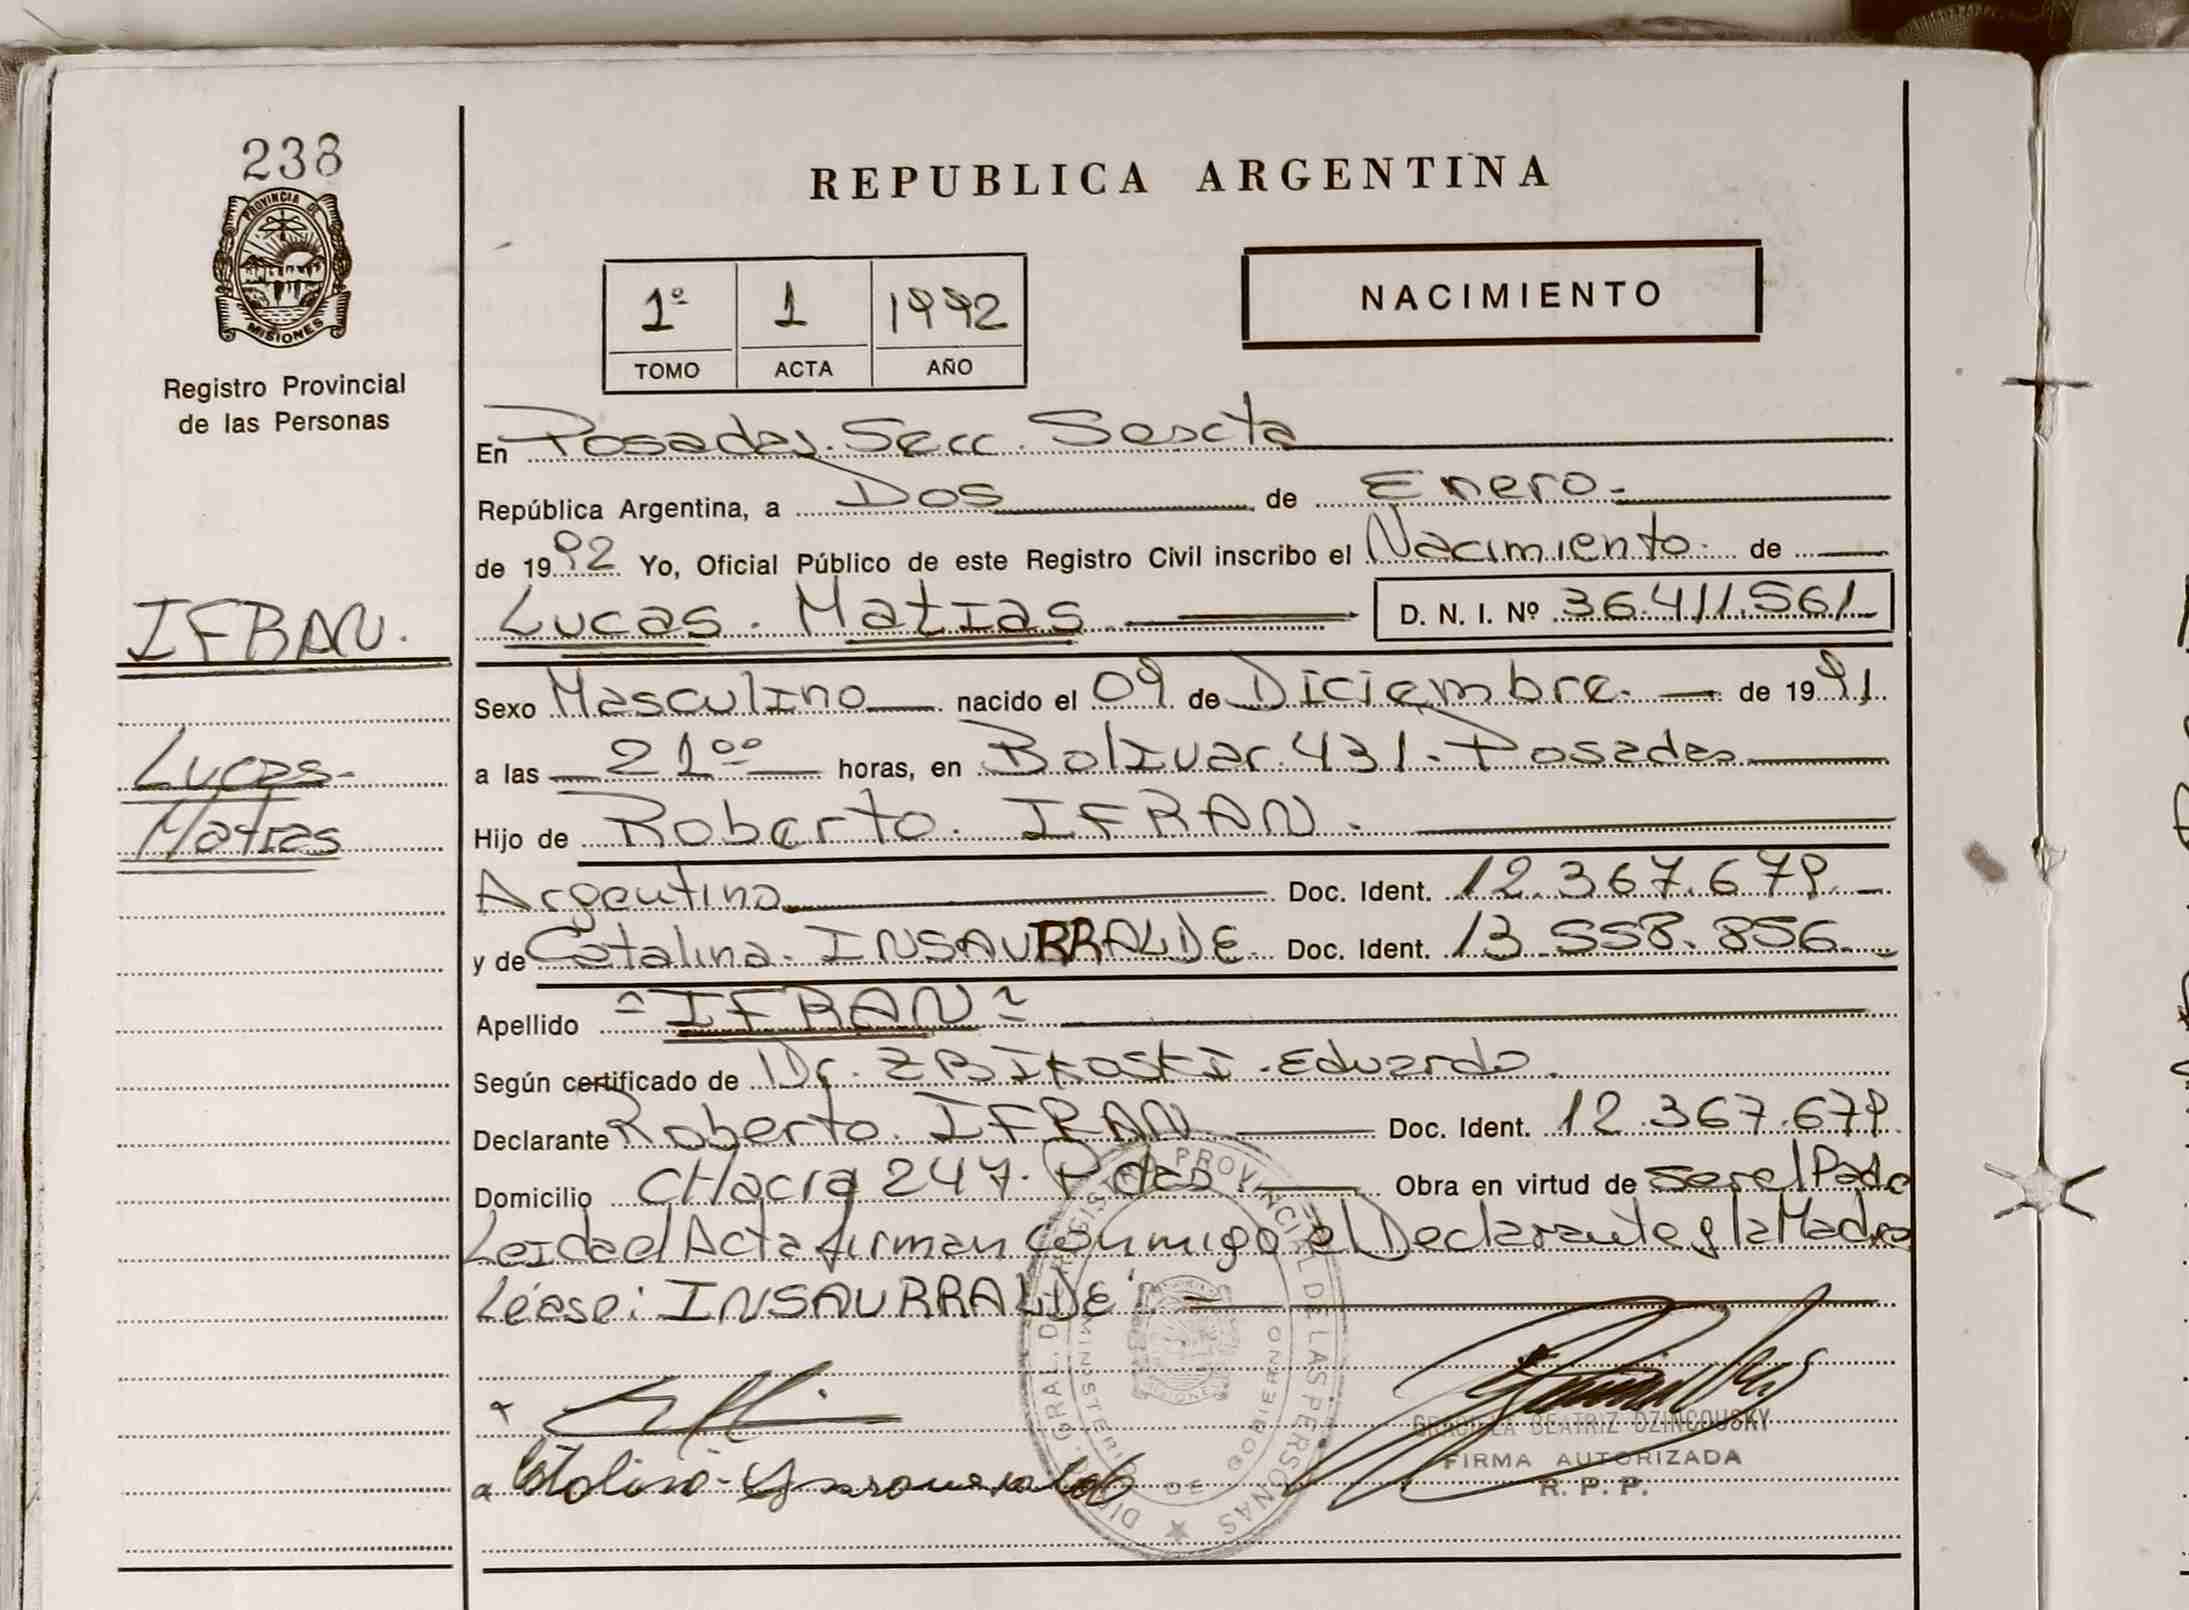 238
PROVINCIA DE
MISIONES
Registro Provincial
de las Personas
IFRAN.
Lucas-
Matias
REPUBLICA ARGENTINA
1º 1 1992
TOMO ACTA AÑO
NACIMIENTO
En Posadas. Secc. Sescta
República Argentina, a Dos de Enero.-
de 1992 Yo, Oficial Público de este Registro Civil inscribo el Nacimiento. de
Lucas. Matias D. N. I. Nº 36.411.561
Sexo Masculino nacido el 09 de Diciembre. de 1991
a las 21ºº horas, en Bolivar. 431. Posadas
Hijo de Roberto. IFRAN.
Argentino Doc. Ident. 12.367.679.
y de Catalina. INSAURRALDE. Doc. Ident. 13.558.856.
Apellido =IFRAN=
Según certificado de Dr. ZBIKOSKI. Eduardo.
Declarante Roberto. IFRAN Doc. Ident. 12.367.679
Domicilio CHacra 247. Pdas Obra en virtud de ser el Padre
Leida el Acta firman conmigo el Declarante y la Madre
Léase: INSAURRALDE:
DIR. GRAL. DEL REGISTRO PROVINCIAL DE LAS PERSONAS
MINISTERIO DE GOBIERNO
MISIONES
GRACIELA BEATRIZ DZINCOUSKY
FIRMA AUTORIZADA
R. P. P.